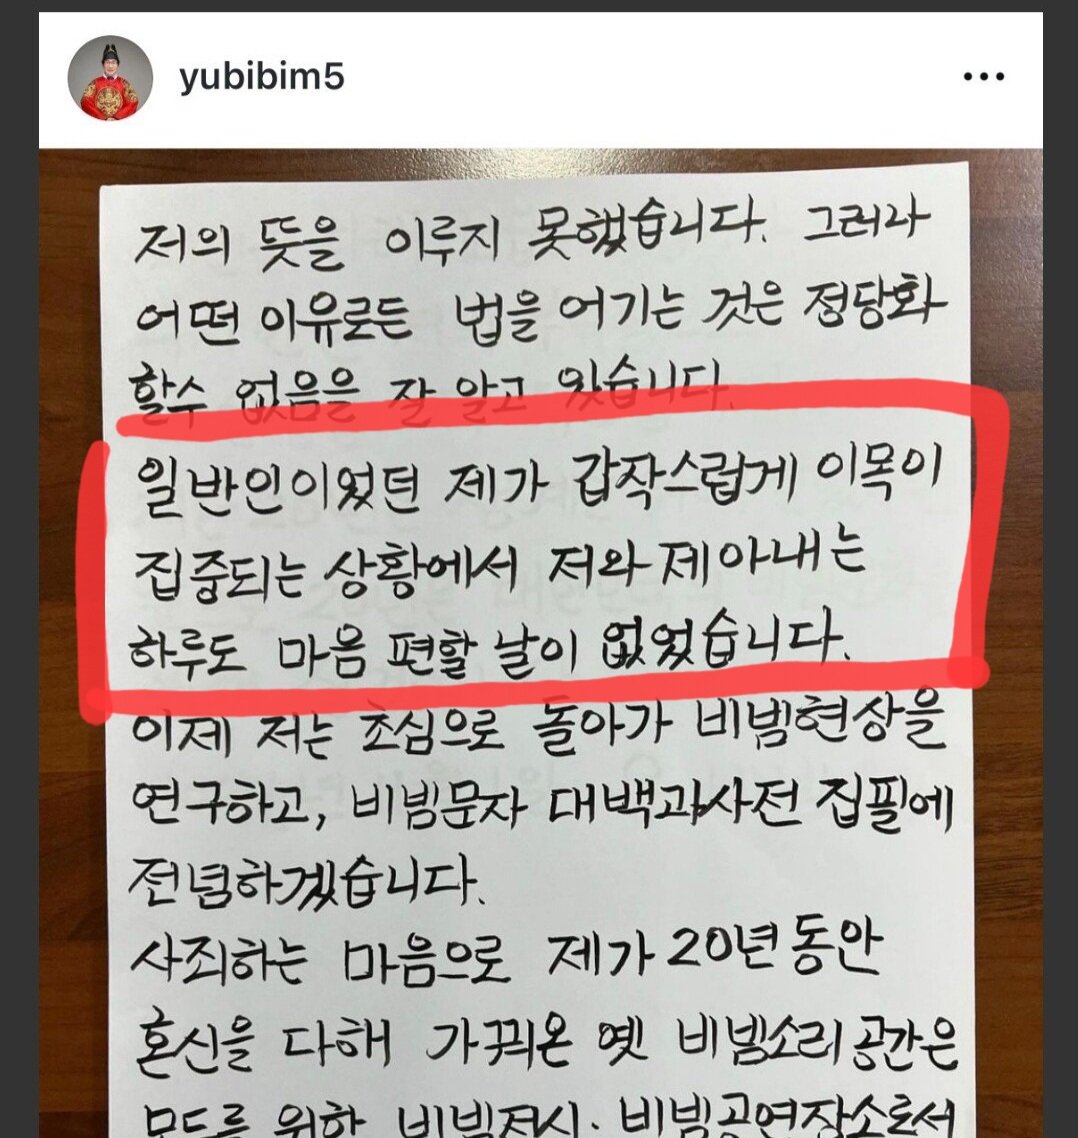 yubibim5
저의 뜻을 이루지 못했습니다. 그러나
어떤 이유로든 법을 어기는 것은 정당화
할수 없음을 잘 알고 있습니다.
일반인이었던 제가 갑작스럽게 이목이
집중되는 상황에서 저와 제아내는
하루도 마음 편할 날이 없었습니다.
이제 저는 초심으로 돌아가 비빔현상을
연구하고, 비빔문자 대백과사전 집필에
전념하겠습니다.
사죄하는 마음으로 제가 20년동안
혼신을 다해 가꿔온 옛 비빔소리공간은
모두를 위한 비빔전시·비빔공연장소로서